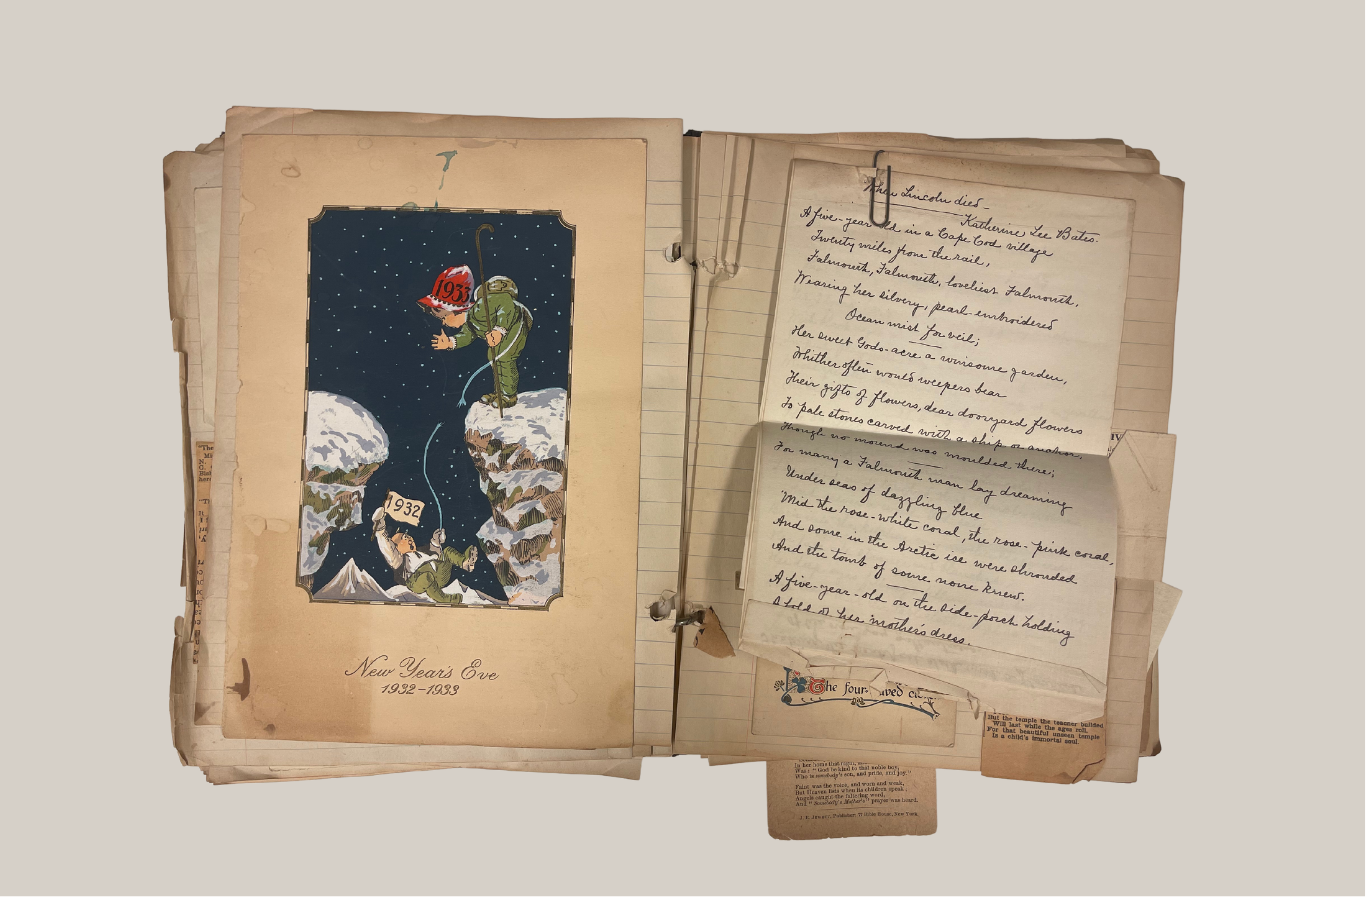 1933
1932
New Year's Eve
1932-1933
When Lincoln died-
Katherine Lee Bates.
A five-year old in a Cape Cod village
Twenty miles from the rail,
Falmouth, Falmouth, loveliest Falmouth,
Wearing her silvery, pearl-embroidered
Ocean mist for veil;
Her sweet Gods-acre a winsome garden,
Whither often would weepers bear
Their gifts of flowers, dear dooryard flowers
To pale stones carved with a ship or anchor,
Though no mound was moulded there;
For many a Falmouth man lay dreaming
Under seas of dazzling blue
Mid the rose-white coral, the rose-pink coral,
And some in the Arctic ice were shrouded
And the tomb of some none knew.
A five-year-old on the side-porch holding
A fold of her mother's dress.
The four
But the temple the teacher builded
Will last while the ages roll,
For that beautiful unseen temple
Is a child's immortal soul.
In her home that night,
Was: "God be kind to that noble boy,
Who is somebody's son, and pride, and joy."
Faint was the voice, and worn and weak,
But Heaven lists when its children speak;
Angels caught the faltering word,
And "Somebody's Mother's" prayer was heard.
New York.